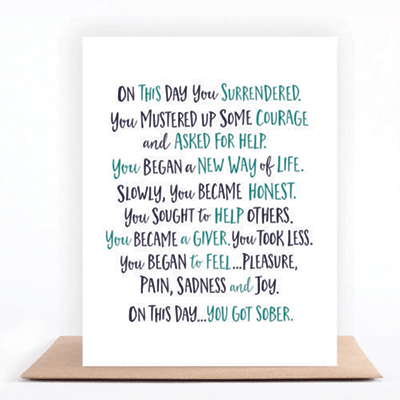 ON THIS DAY You SURRENDERED.
You MUSTERED UP SOME COURAGE
and ASKED FOR HELP.
You BEGAN a NEW WAY of LIFE.
SLOWLY, You BECAME HONEST.
You SOUGHT to HELP OTHERS.
You BECAME a GIVER. You TOOK LESS.
You BEGAN to FEEL...PLEASURE,
PAIN, SADNESS and JOY.
ON THIS DAY...YOU GOT SOBER.